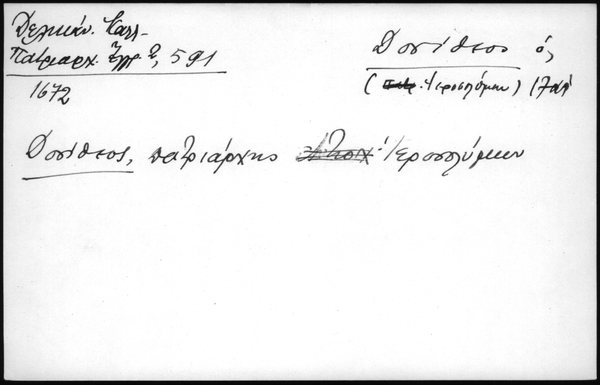 Δελικάν. Καλλ.
Πατριαρχ. Ἔγγρ. 2, 591
1672
Δοσίθεος ὁ,
( Ἱεροσολύμων)
Δοσίθεος, πατριάρχης Ἱεροσολύμων